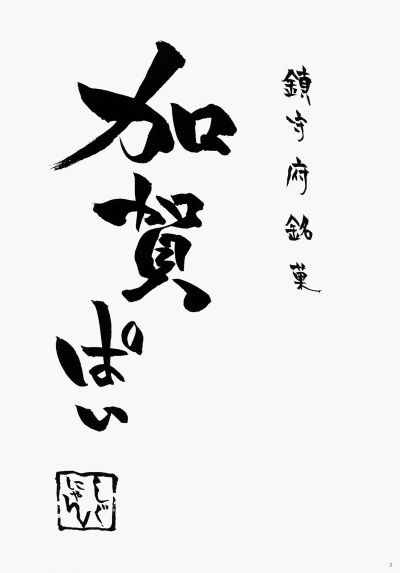 鎮守府銘菓
加賀ぱい
しぐ
にゃん
3